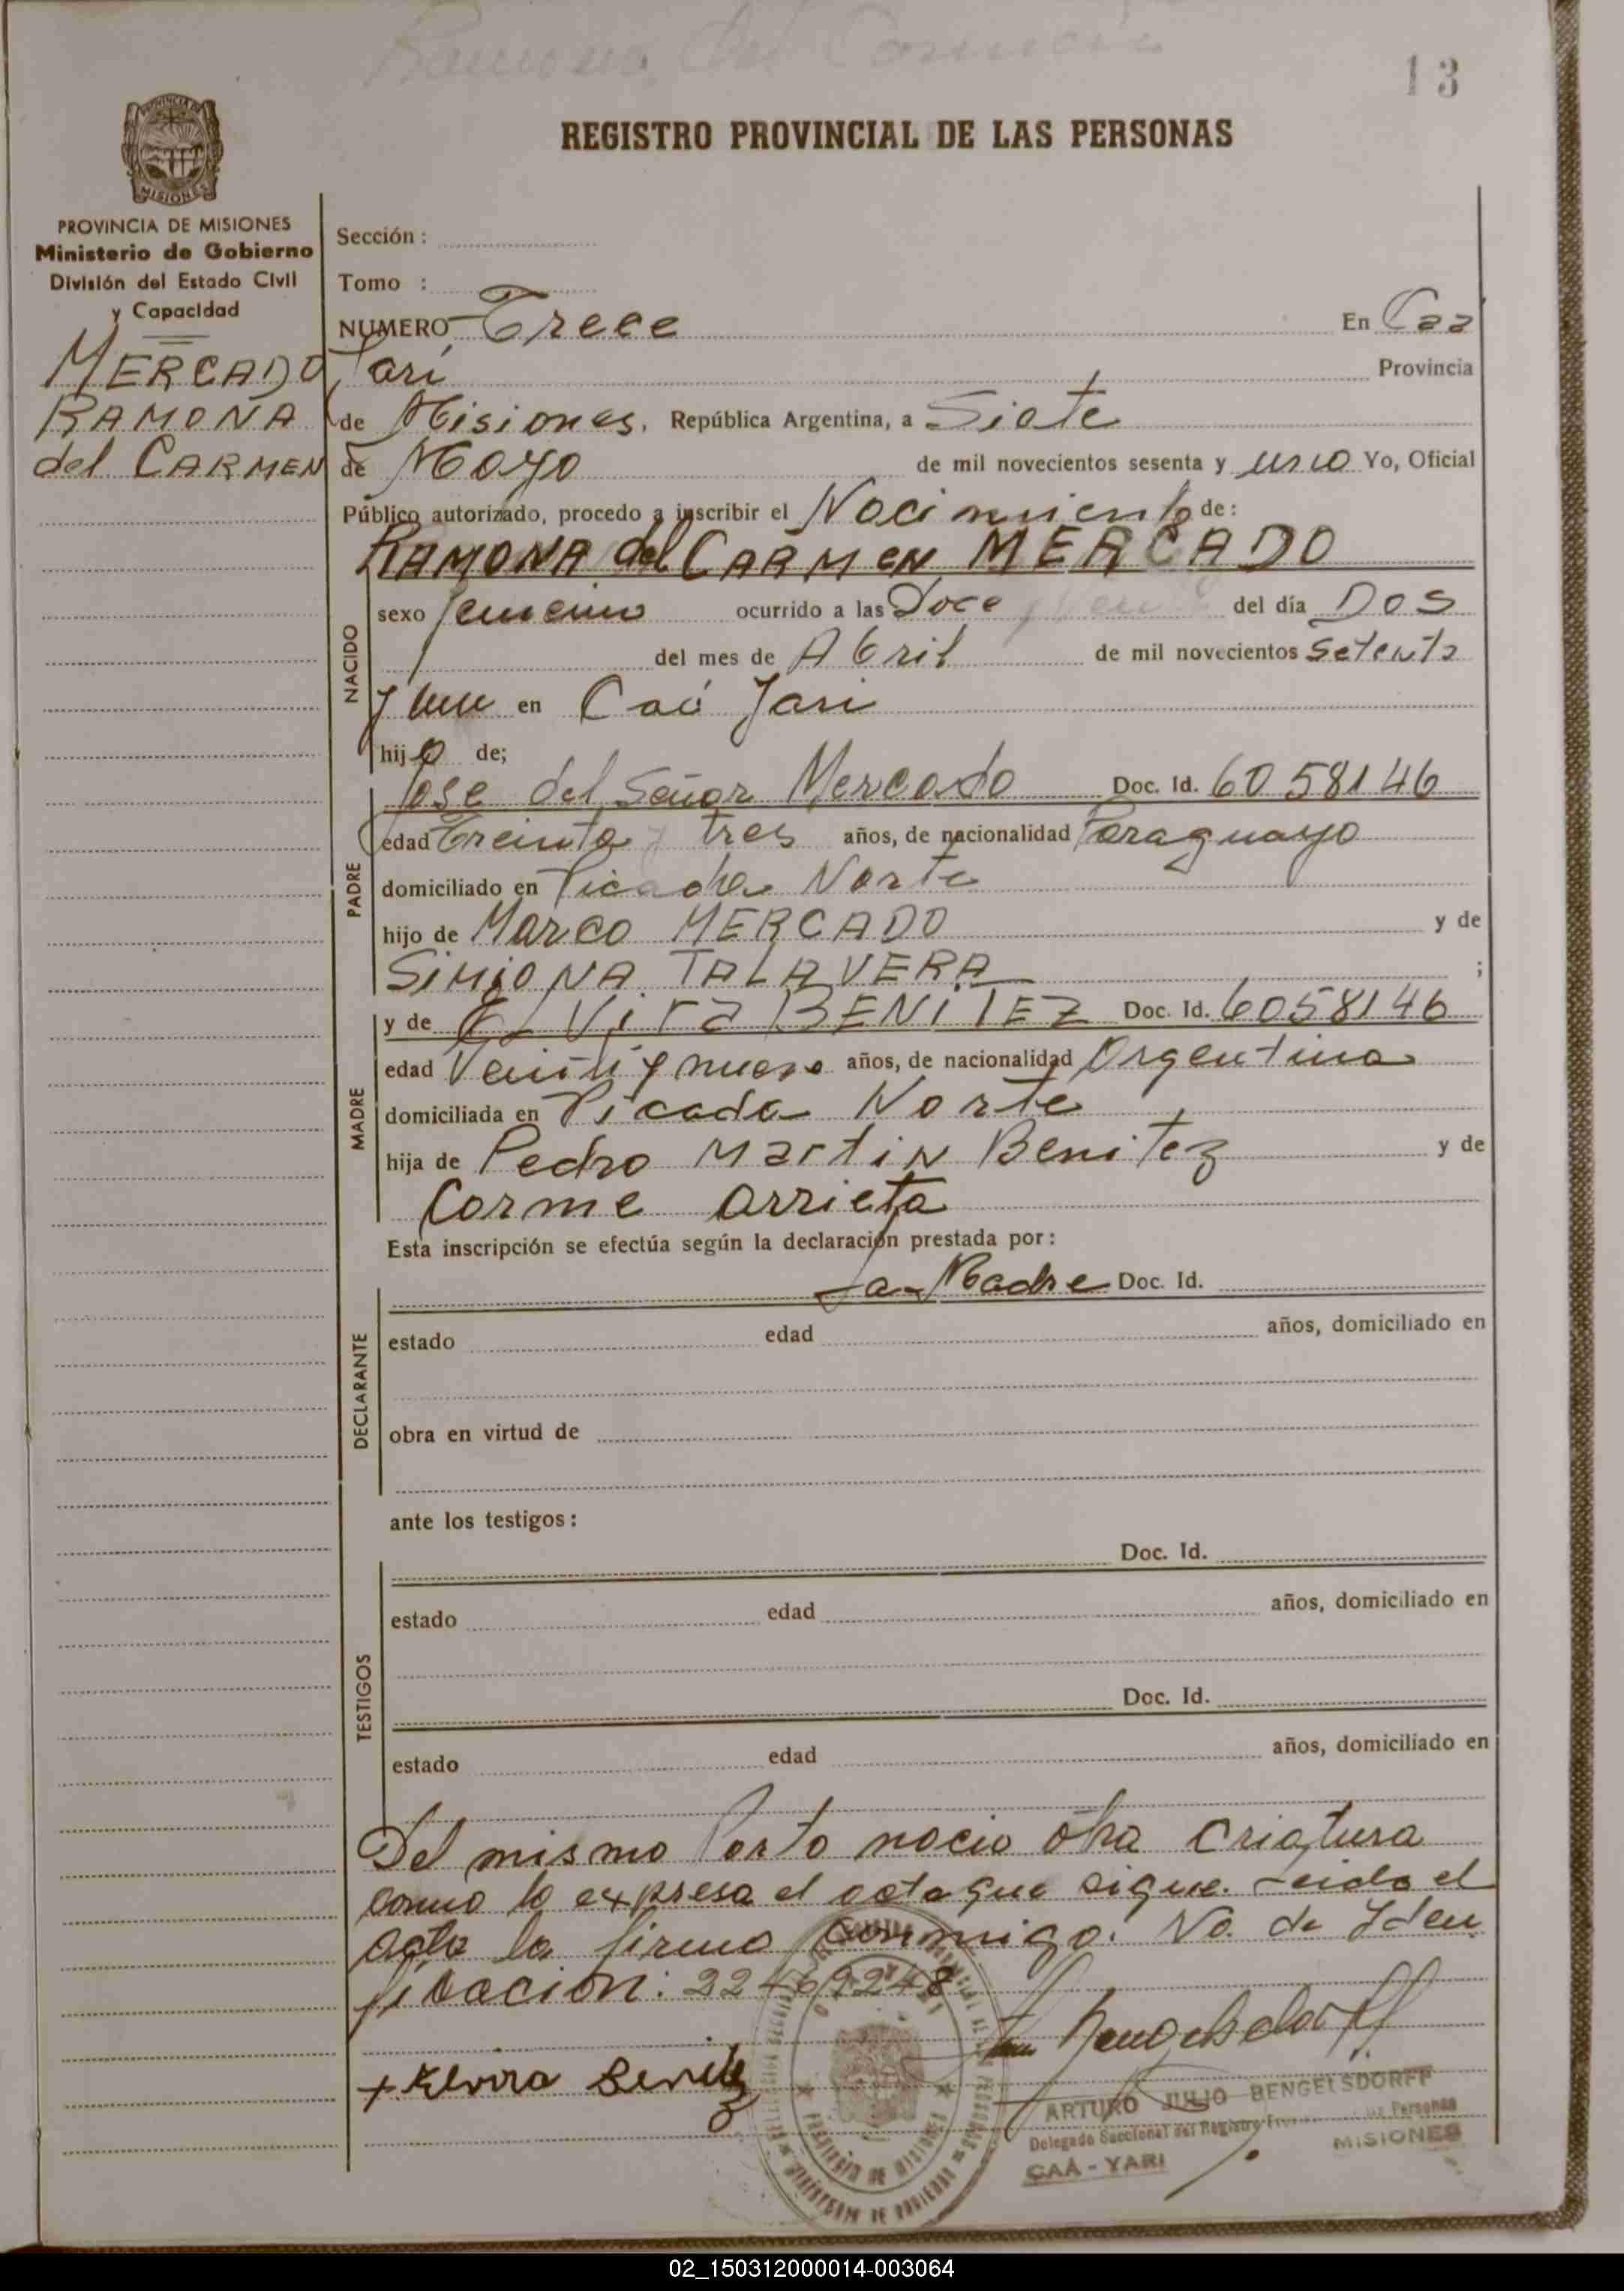 Ramona del Carmen
13
REGISTRO PROVINCIAL DE LAS PERSONAS
PROVINCIA DE MISIONES
Ministerio de Gobierno
División del Estado Civil
y Capacidad
MERCADO
RAMONA
del CARMEN
Sección :
Tomo :
NUMERO Trece En Caá
Yari Provincia
de Misiones, República Argentina, a Siete
de Mayo de mil novecientos sesenta y uno Yo, Oficial
Público autorizado, procedo a inscribir el Nacimiento de:
RAMONA del CARMEN MERCADO
NACIDO
sexo femenino ocurrido a las Doce del día Dos
del mes de Abril de mil novecientos Setenta
y uno en Caá Yari
hija de;
PADRE
Jose del Señor Mercado Doc. Id. 6058146
edad Treinta y tres años, de nacionalidad Paraguayo
domiciliado en Picada Norte
hijo de Marco MERCADO y de
SIMIONA TALAVERA ;
MADRE
y de ELVira BENITEZ Doc. Id. 6058146
edad Veinti y nueve años, de nacionalidad Argentina
domiciliada en Picada Norte
hija de Pedro Martin Benitez y de
Carme Arrieta
Esta inscripción se efectúa según la declaración prestada por:
DECLARANTE
La Madre Doc. Id.
estado edad años, domiciliado en
obra en virtud de
ante los testigos:
TESTIGOS
Doc. Id.
estado edad años, domiciliado en
Doc. Id.
estado edad años, domiciliado en
Del mismo Parto nacio otra Criatura
como lo expresa el acta que sigue. Leida el
acta la firma conmigo. No. de Iden
ficacion: 22469248
+ Elvira Benitez
ARTURO JULIO BENGELSDORFF
Delegado Seccional del Registro Personas
CAÁ - YARI MISIONES
PROVINCIA DE MISIONES
MINISTERIO DE GOBIERNO
02_150312000014-003064